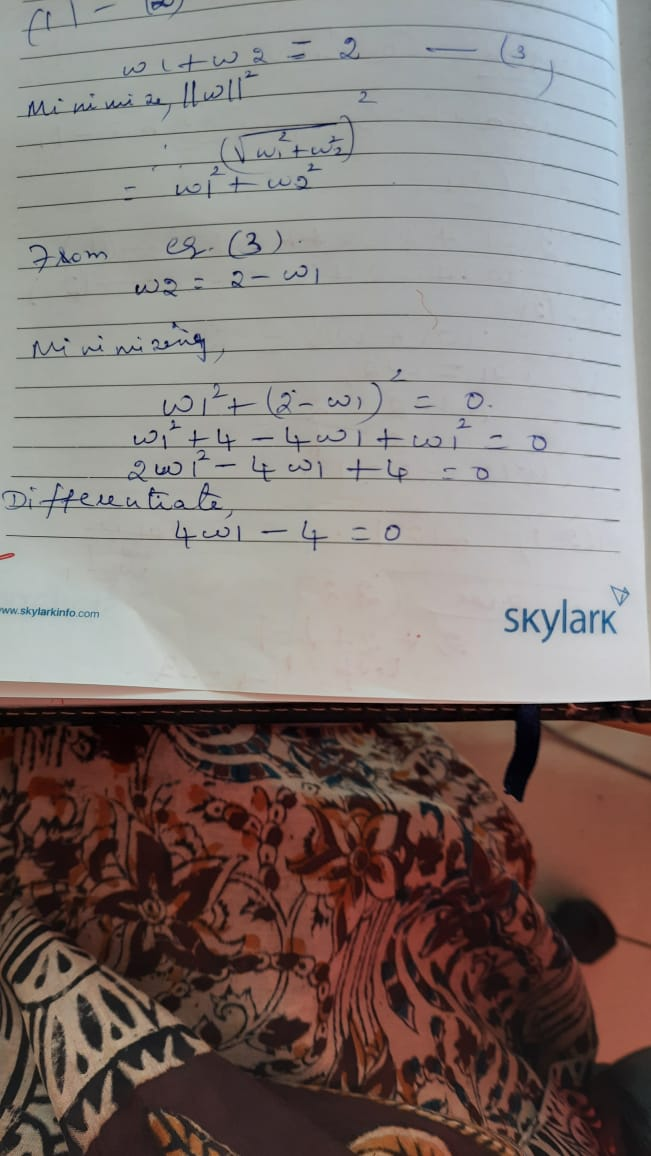 (1) - (2)
w1 + w2 = 2 — (3)
Minimize, ||w||²
(√w1² + w2²)²
= w1² + w2²
From eq. (3).
w2 = 2 - w1
Minimizing,
w1² + (2 - w1)² = 0.
w1² + 4 - 4w1 + w1² = 0
2w1² - 4w1 + 4 = 0
Differentiate,
4w1 - 4 = 0
www.skylarkinfo.com
skylark